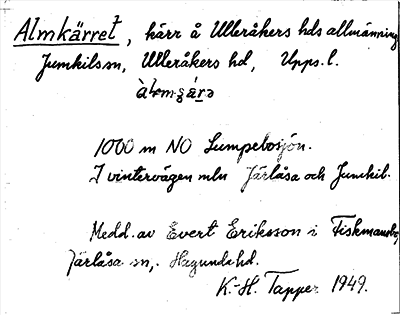 Almkärret, kärr å Ulleråkers hds allmänning
Jumkils sn, Ulleråkers hd, Upps. l.
1000 m NO Lumpebosjön.
I vintervägen mln Järlåsa och Jumkil.
Medd. av Evert Eriksson i Fiskmansbo,
Järlåsa sn, Hagunda hd.
K.-H. Tapper 1949.